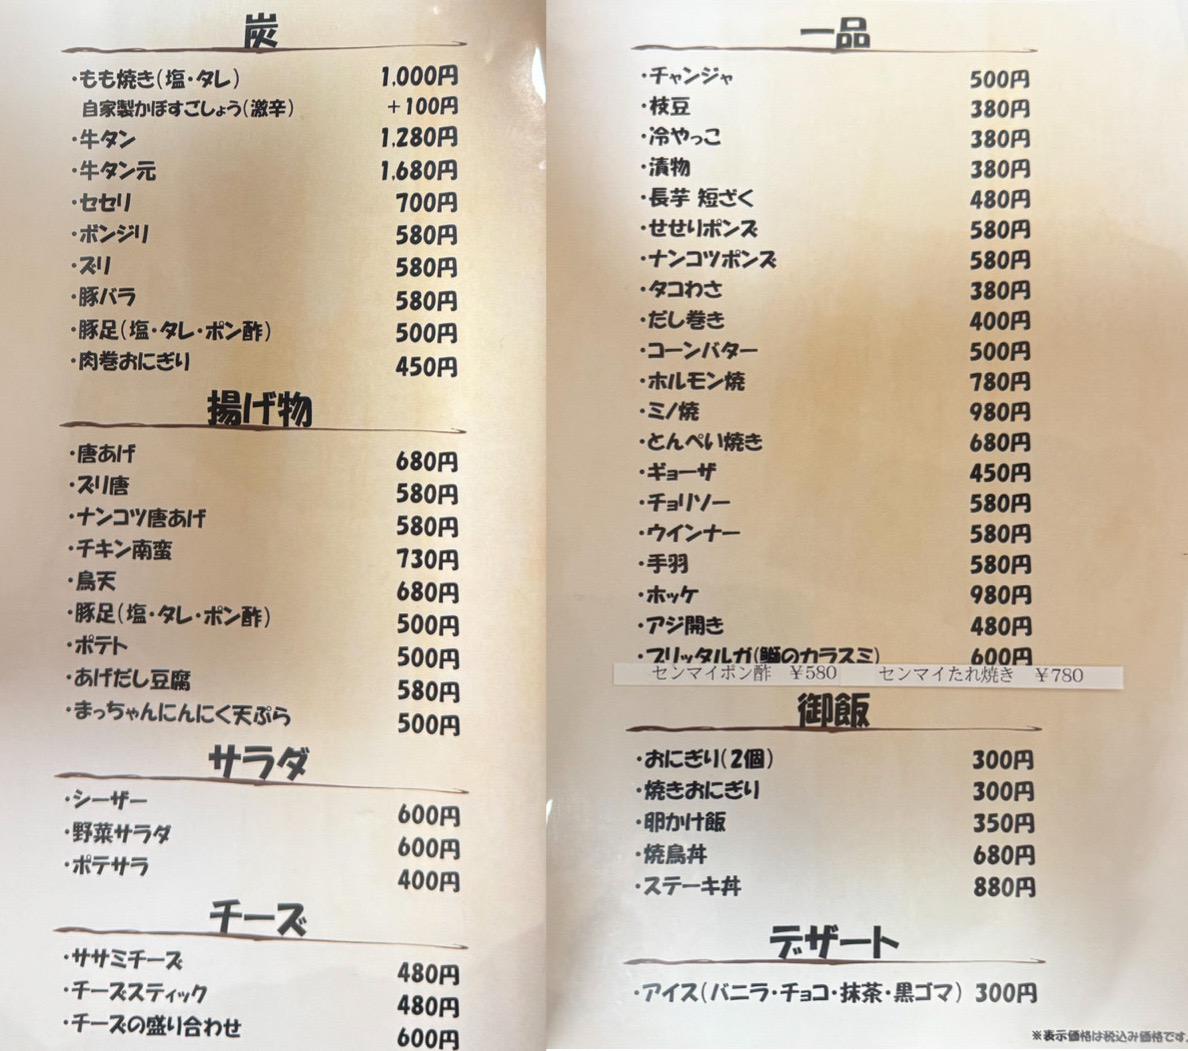 炭
・もも焼き(塩・タレ) 1,000円
自家製かぼすごしょう(激辛) +100円
・牛タン 1,280円
・牛タン元 1,680円
・セセリ 700円
・ボンジリ 580円
・ズリ 580円
・豚バラ 580円
・豚足(塩・タレ・ポン酢) 500円
・肉巻おにぎり 450円
揚げ物
・唐あげ 680円
・ズリ唐 580円
・ナンコツ唐あげ 580円
・チキン南蛮 730円
・鳥天 680円
・豚足(塩・タレ・ポン酢) 500円
・ポテト 500円
・あげだし豆腐 580円
・まっちゃんにんにく天ぷら 500円
サラダ
・シーザー 600円
・野菜サラダ 600円
・ポテサラ 400円
チーズ
・ササミチーズ 480円
・チーズスティック 480円
・チーズの盛り合わせ 600円
一品
・チャンジャ 500円
・枝豆 380円
・冷やっこ 380円
・漬物 380円
・長芋 短ざく 480円
・せせりポンズ 580円
・ナンコツポンズ 580円
・タコわさ 380円
・だし巻き 400円
・コーンバター 500円
・ホルモン焼 780円
・ミノ焼 980円
・とんぺい焼き 680円
・ギョーザ 450円
・チョリソー 580円
・ウインナー 580円
・手羽 580円
・ホッケ 980円
・アジ開き 480円
・ブリッタルガ(鰤のカラスミ) 600円
センマイポン酢 ¥580 センマイたれ焼き ¥780
御飯
・おにぎり(2個) 300円
・焼きおにぎり 300円
・卵かけ飯 350円
・焼鳥丼 680円
・ステーキ丼 880円
デザート
・アイス(バニラ・チョコ・抹茶・黒ゴマ) 300円
※表示価格は税込み価格です。